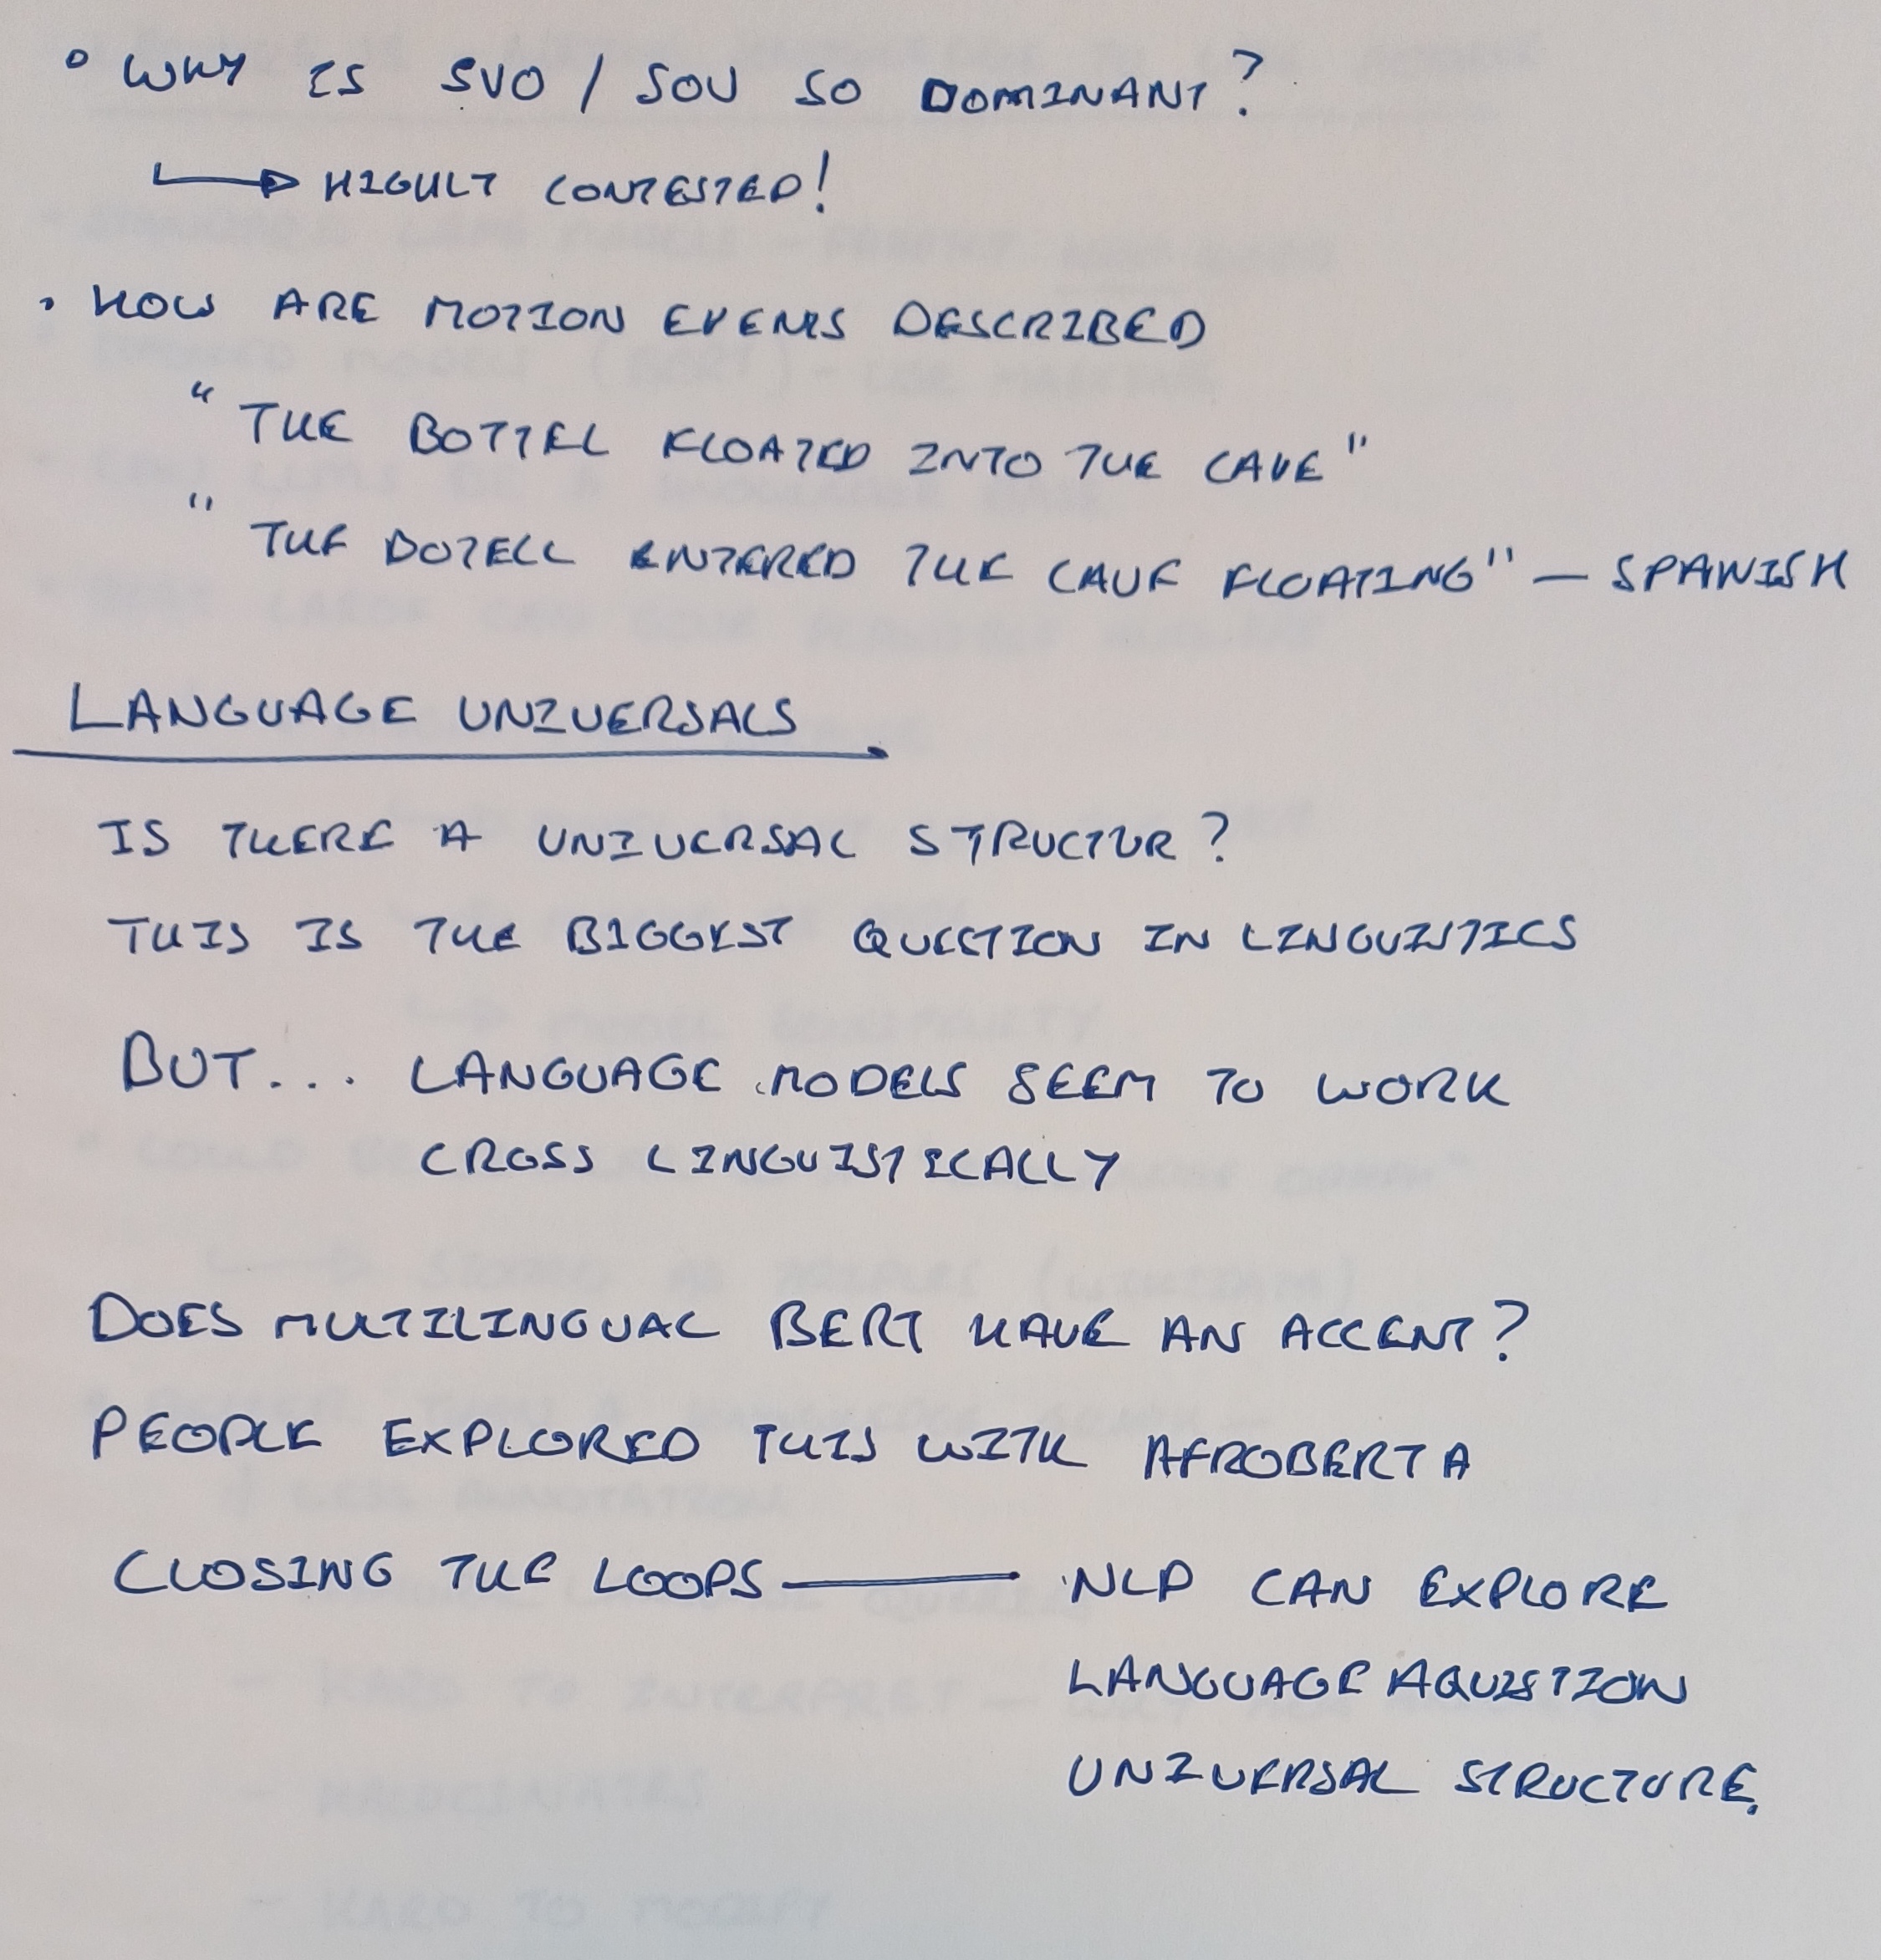 • WHY IS SVO / SOV SO DOMINANT?
↳ HIGULT CONTESTED!
• HOW ARE MOTION EVENTS DESCRIBED
" THE BOTTEL FLOATED INTO THE CAVE "
" THE BOTELL ENTERED THE CAVE FLOATING" — SPANISH
LANGUAGE UNIVERSALS
IS THERE A UNIVERSAL STRUCTUR?
THIS IS THE BIGGEST QUESTION IN LINGUISTICS
BUT... LANGUAGE MODELS SEEM TO WORK
CROSS LINGUISTICALLY
DOES MULTILINGUAL BERT HAVE AN ACCENT?
PEOPLE EXPLORED THIS WITH AFROBERTA
CLOSING THE LOOPS — NLP CAN EXPLORE
LANGUAGE AQUISTION
UNIVERSAL STRUCTURE.